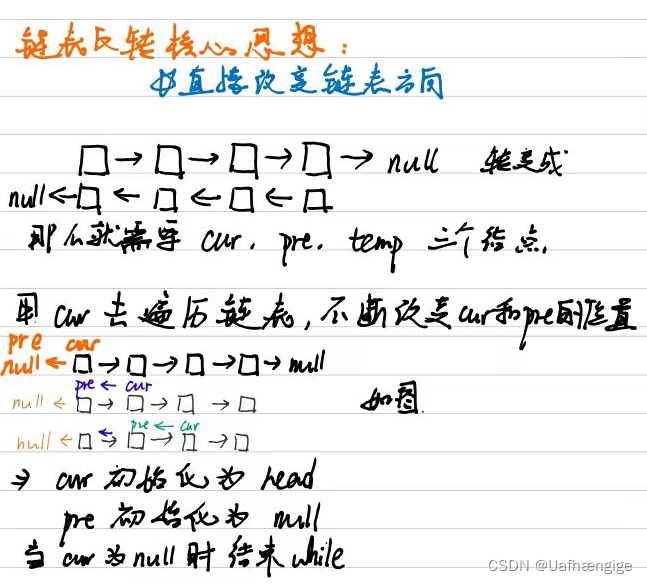 链表反转核心思想：
直接改变链表方向
□→□→□→□→ null 转变成
null←□←□←□←□
那么就需要 cur. pre. temp 三个结点.
用 cur 去遍历链表, 不断改变cur和pre的位置
pre cur
null←□→□→□→□→ null
pre ← cur
null ← □→□→□ →□ 如图.
pre ← cur
null ←□ ← □→□ →□
⇒ cur 初始化为 head
pre 初始化为 null
当 cur 为 null 时 结束 while
CSDN @Uafhængige